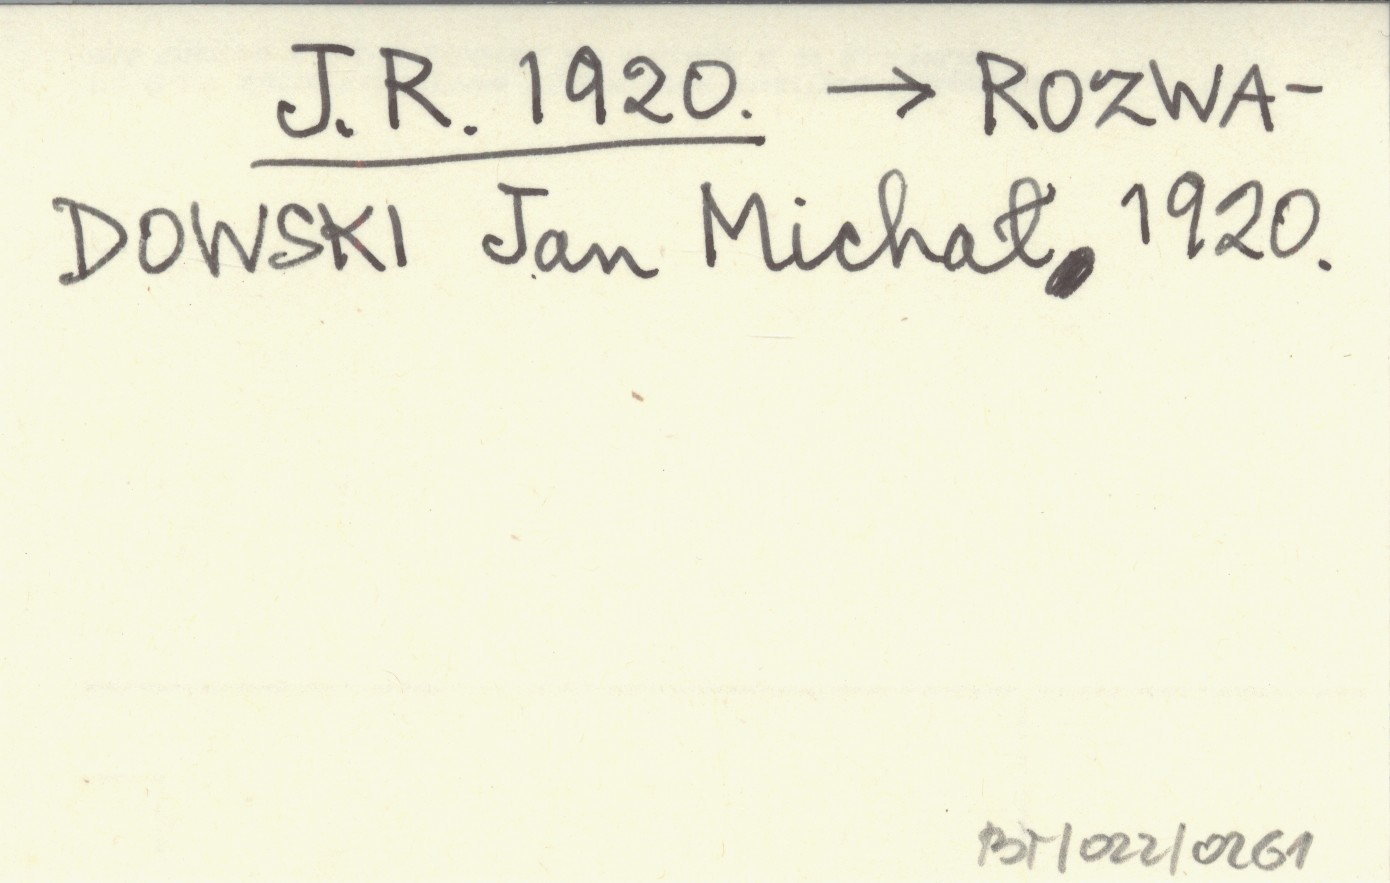 J.R. 1920. → ROZWA-
DOWSKI Jan Michał, 1920.
BT/022/0261